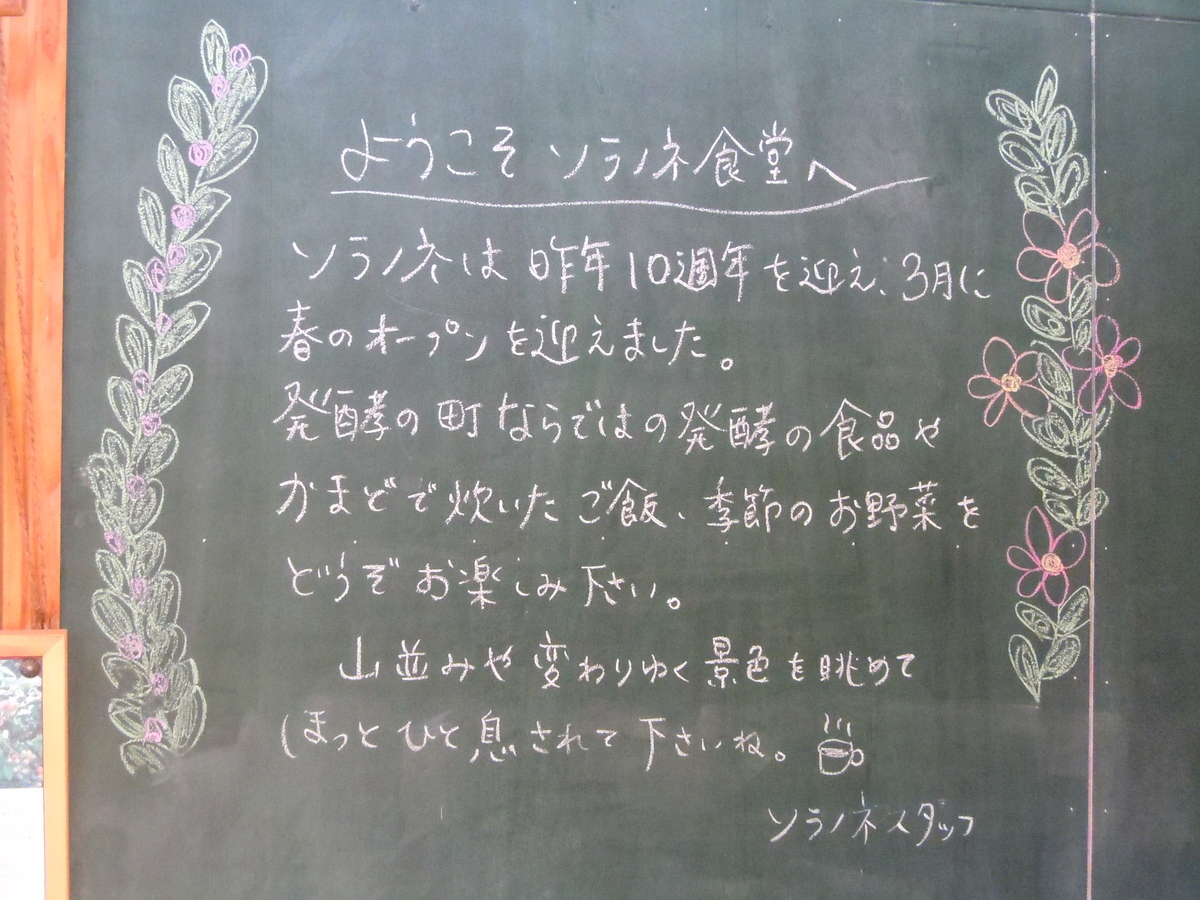 ようこそ ソラノネ食堂へ
ソラノネは昨年10週年を迎え、3月に
春のオープンを迎えました。
発酵の町ならではの発酵の食品や
かまどで炊いたご飯、季節のお野菜を
どうぞお楽しみ下さい。
山並みや変わりゆく景色を眺めて
ほっとひと息されて下さいね。
ソラノネスタッフ